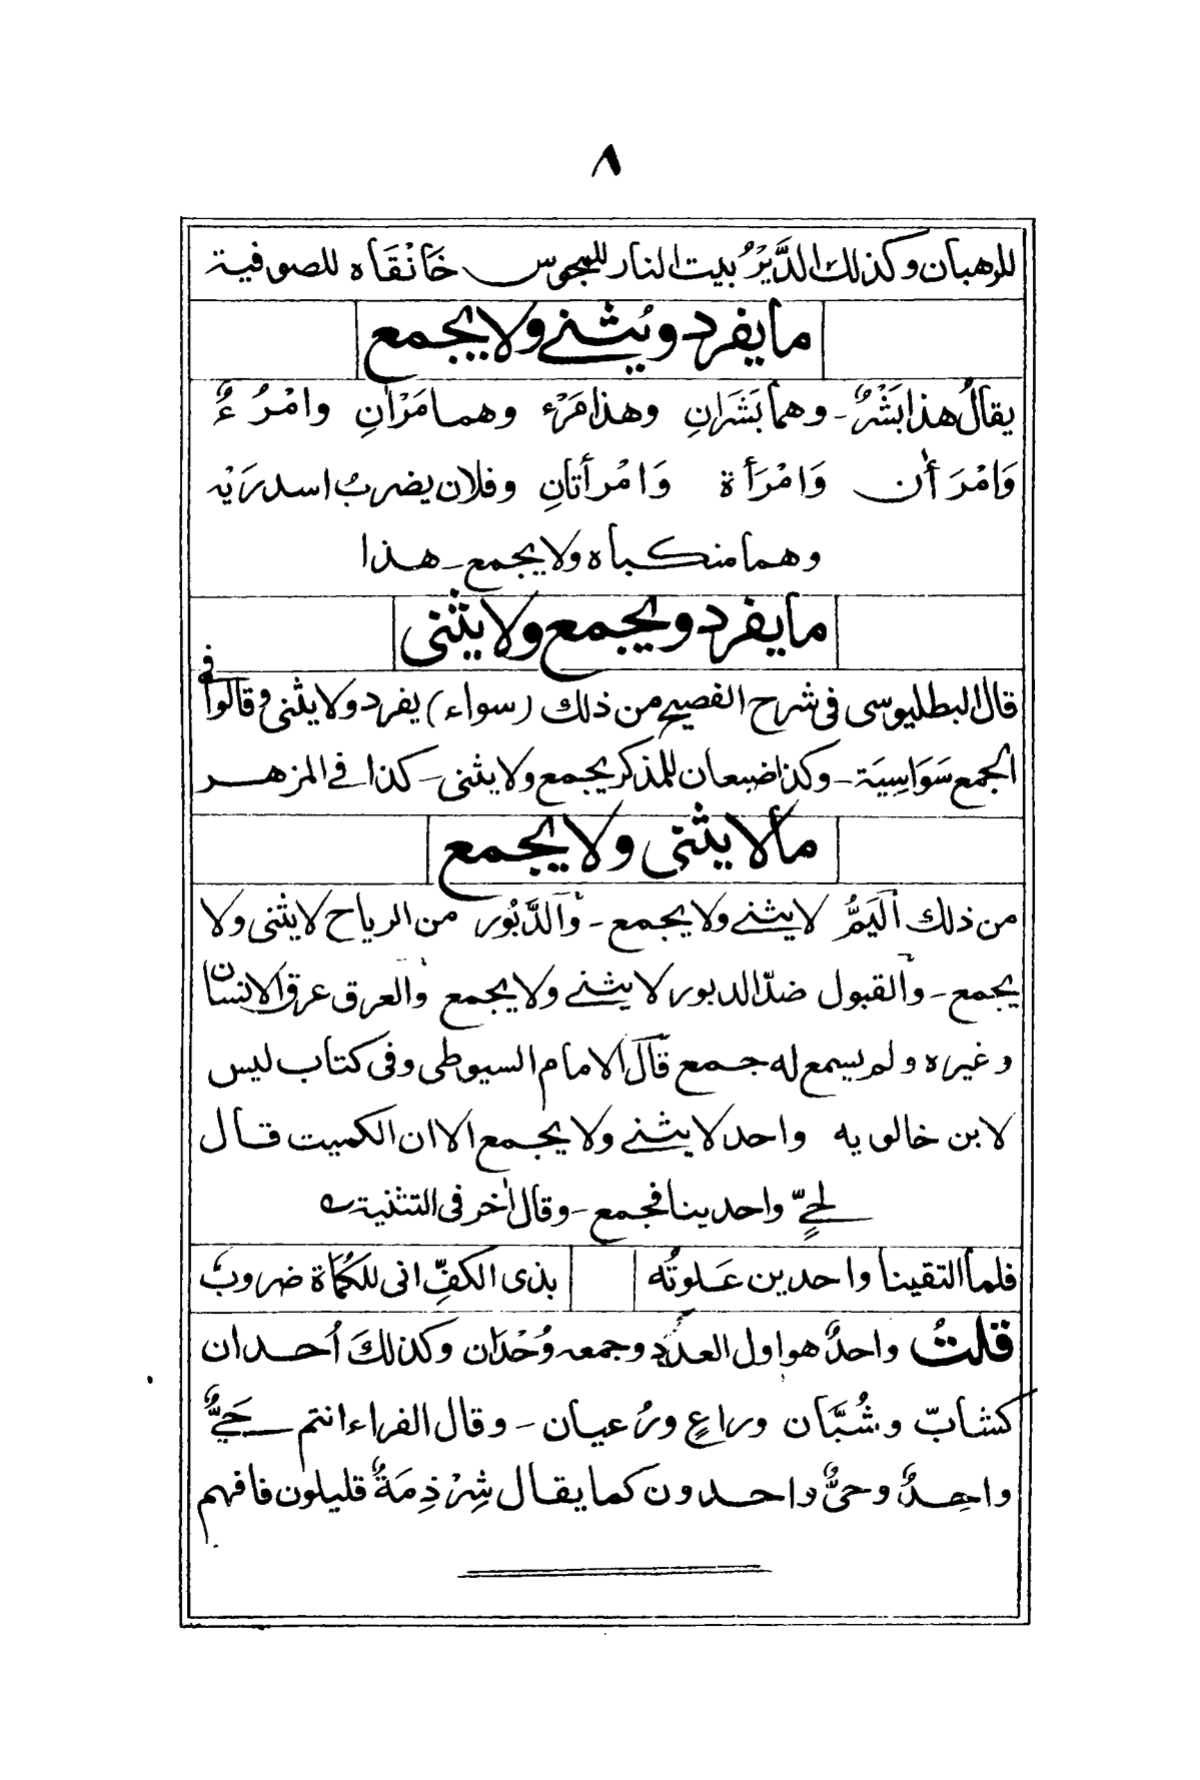 ٨
للرهبان وكذلك الدَّيْرُ بيت النار للمجوس خَانْقَاه للصوفية
ما يفرد ويُثنے ولا يجمع
يقالُ هذا بَشَرٌ ـ وهما بَشَرانِ وهذا مَرْء وهما مَرْانِ وامْرُءٌ
وَامْرَأٰن وَامْرَأة وَامْرأتانِ وفلان يضربُ اسدرَيْه
وهما منكباه ولا يجمع ـ هذا
ما يفرد ويجمع ولا يثنى
قال البطليوسى فى شرح الفصيح من ذلك (سواء) يفرد ولا يثنى وقالوا فى
الجمع سَوَاسِيَة ـ وكذا ضبعان للمذكر يجمع ولا يثنى ـ كذا فے المزهر
ما لا يثنى ولا يجمع
من ذلك اَلَيمُّ لا يثنے ولا يجمع ـ وَالدَّبُور من الرياح لا يثنى ولا
يجمع ـ وَالقبول ضدّ الدبور لا يثنے ولا يجمع وَالعرق عرق الانسان
وغيره ولم يسمع له جمع قَالَ الامام السيوطى وفى كتاب ليس
لابن خالويه واحد لا يثنے ولا يجمع الا ان الكميت قال
لحيٍّ واحدينا فجمع ـ وقال اٰخر فى التثنية ؎
فلما التقينا واحدين عَلوتُه بذى الكفِّ انى للكُمَاة ضروبُ
قلتُ واحدٌ هو اول العدد وجمعه وُحْدَان وكذلكَ اُحدان
كشابّ وشُبَّان وراعٍ ورُعيان ـ وقال الفراء انتم حَيٌّ
واحِدٌ وحىٌّ واحدون كما يقال شِرْذِمَةٌ قليلون فافهم